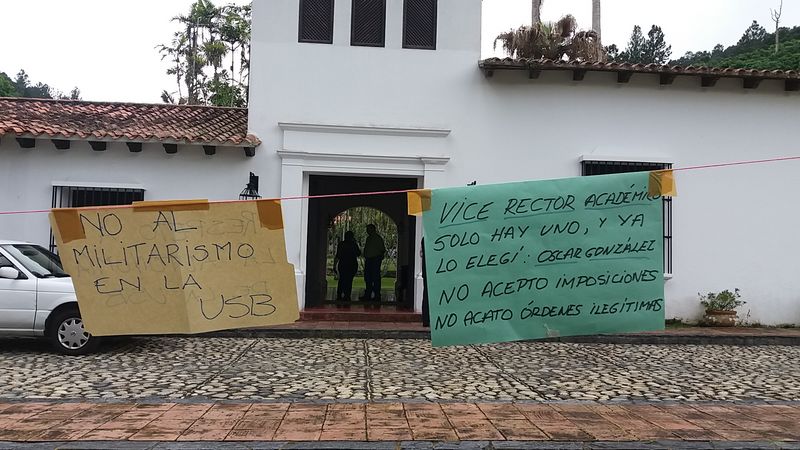 NO AL
MILITARISMO
EN LA
USB
VICE RECTOR ACADÉMICO
SOLO HAY UNO, Y YA
LO ELEGÍ: OSCAR GONZÁLEZ
NO ACEPTO IMPOSICIONES
NO ACATO ÓRDENES ILEGÍTIMAS